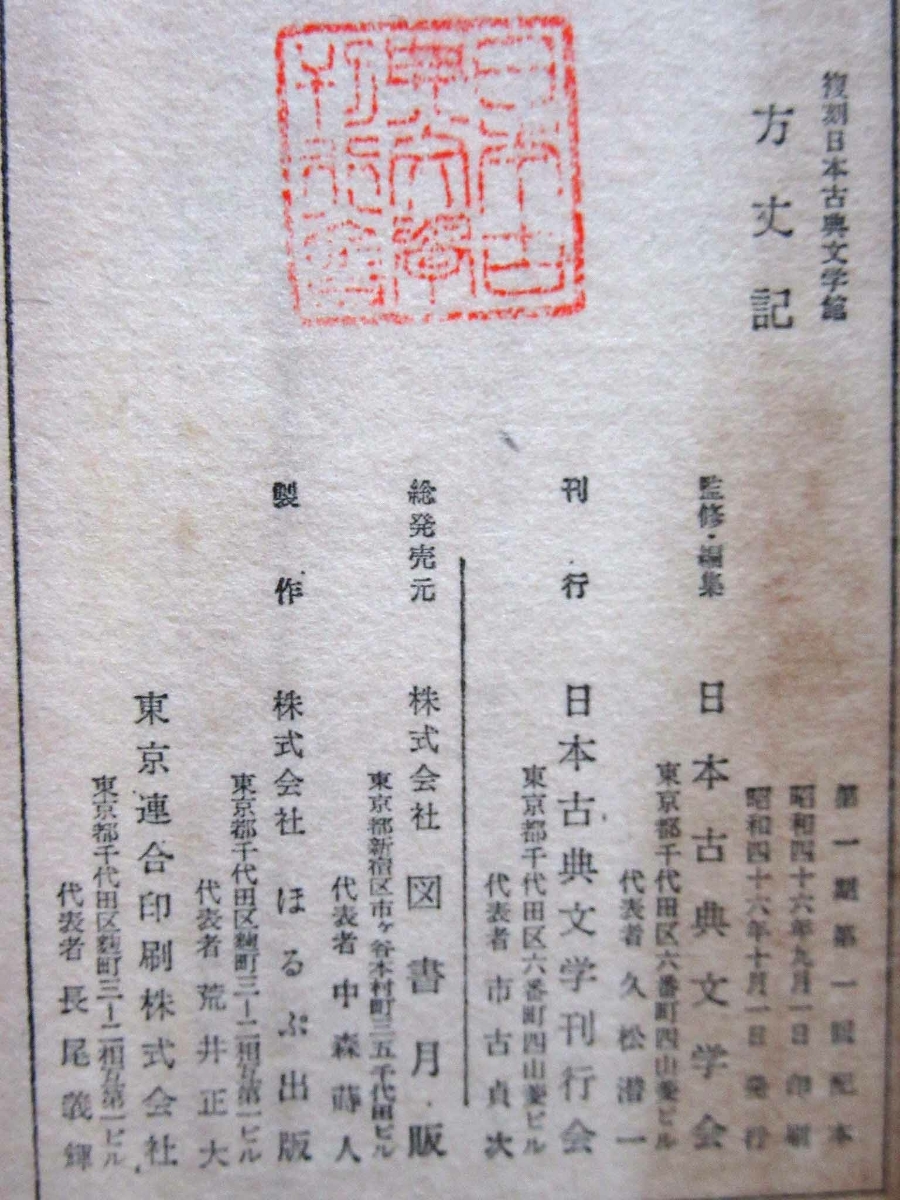 復刻日本古典文学館
方丈記
第一期第一回配本
昭和四十六年九月一日 印刷
昭和四十六年十月一日 発行
監修・編集 日本古典文学会
東京都千代田区六番町四山菱ビル
代表者 久松潜一
刊行 日本古典文学刊行会
東京都千代田区六番町四山菱ビル
代表者 市古貞次
総発売元 株式会社 図書月販
東京都新宿区市ヶ谷本村町三五千代田ビル
代表者 中森蒔人
製作 株式会社 ほるぷ出版
東京都千代田区麹町三ー二相互第一ビル
代表者 荒井正大
東京連合印刷株式会社
東京都千代田区麹町三ー二相互第一ビル
代表者 長尾義輝
日本古
典文学
刊行会